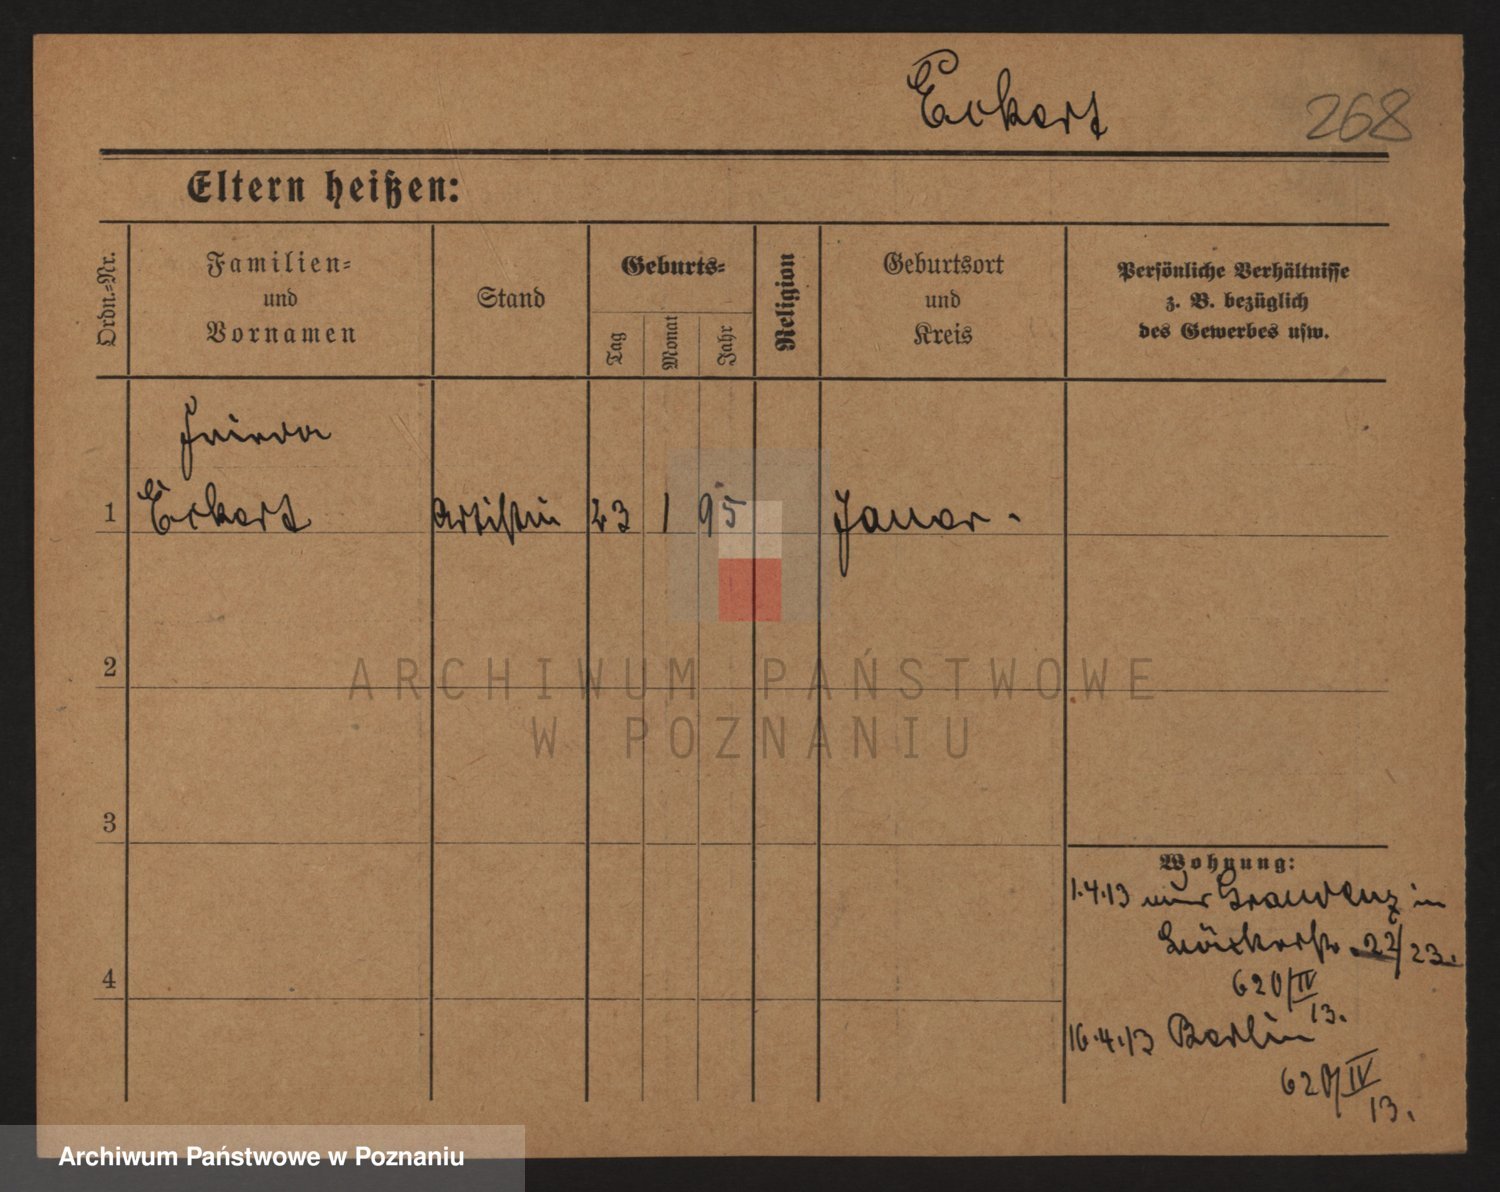 Eckert
268
Eltern heißen:
Ordn.-Nr.
Familien-
und
Vornamen
Stand
Geburts-
Tag
Monat
Jahr
Religion
Geburtsort
und
Kreis
Persönliche Verhältnisse
z. B. bezüglich
des Gewerbes usw.
Frieda
1 Eckert Artistin 23 1 95
2
3
4
Wohnung:
1.4.13 Graudenz in
22/23.
620/IV
13.
16.4.13 Berlin
620/IV
13.
ARCHIWUM PAŃSTWOWE
W POZNANIU
Archiwum Państwowe w Poznaniu